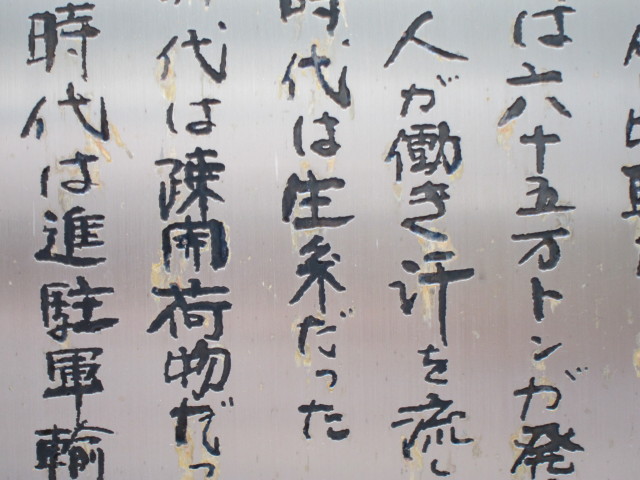 は六十五万トンが発
人が働き汗を流し
時代は生糸だった
代は疎開荷物だっ
時代は進駐軍輸